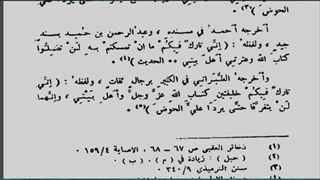 الحوض)(٣).
أخرجه أحمد في مسنده، وعبد الرحمن بن حميد بسند
جيد، ولفظه: (إنّي تاركٌ فيكُم ما إنْ تمسكتم به لَنْ تضلُّوا
كتابَ الله وعترتي أهلَ بيتي .. الحديث)(٤).
وأخرجه الطَّبراني في الكبير برجال ثقات، ولفظه: (إنّي
تاركٌ فيكم خليفتين كتابَ اللهِ عزَّ وجلَّ وأهلَ بَيتي، وإنَّهما
لَنْ يتفرقا حتَّى يردا عليَّ الحوضَ)(٥).
(١) ذخائر العقبى ص ٦٧ - ٦٨، الاصابة ١٥٩/٤
(٢) (حبل): زيادة في (م)، (ب)
(٣) سنن الترمذي ٣٤٠/٩